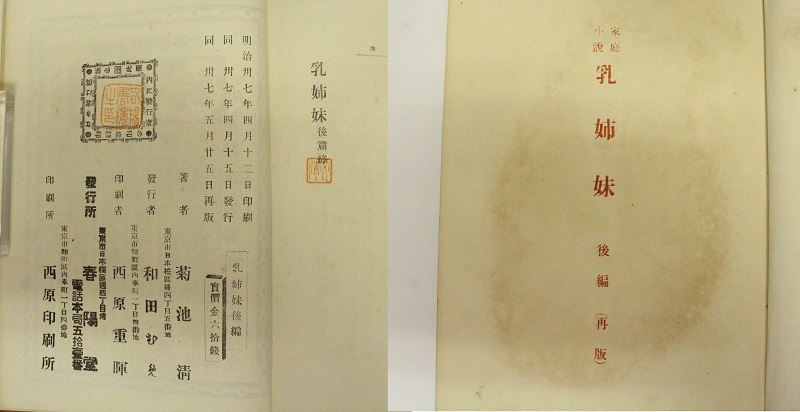 家庭
小說
乳姉妹
後編
(再版)
乳姉妹後篇終
明治卅七年四月十二日印刷
同卅七年四月十五日發行
同卅七年五月廿五日再版
乳姉妹後編
實價金六拾錢
著者
菊池清
東京市日本橋區通四丁目五番地
發行者
和田
東京市麹町區內幸町一丁目四番地
印刷者
西原重暉
東京市日本橋區通四丁目角
發行所
春陽堂
電話本局五拾壹番
東京市麹町區內幸町一丁目四番地
印刷所
西原印刷所